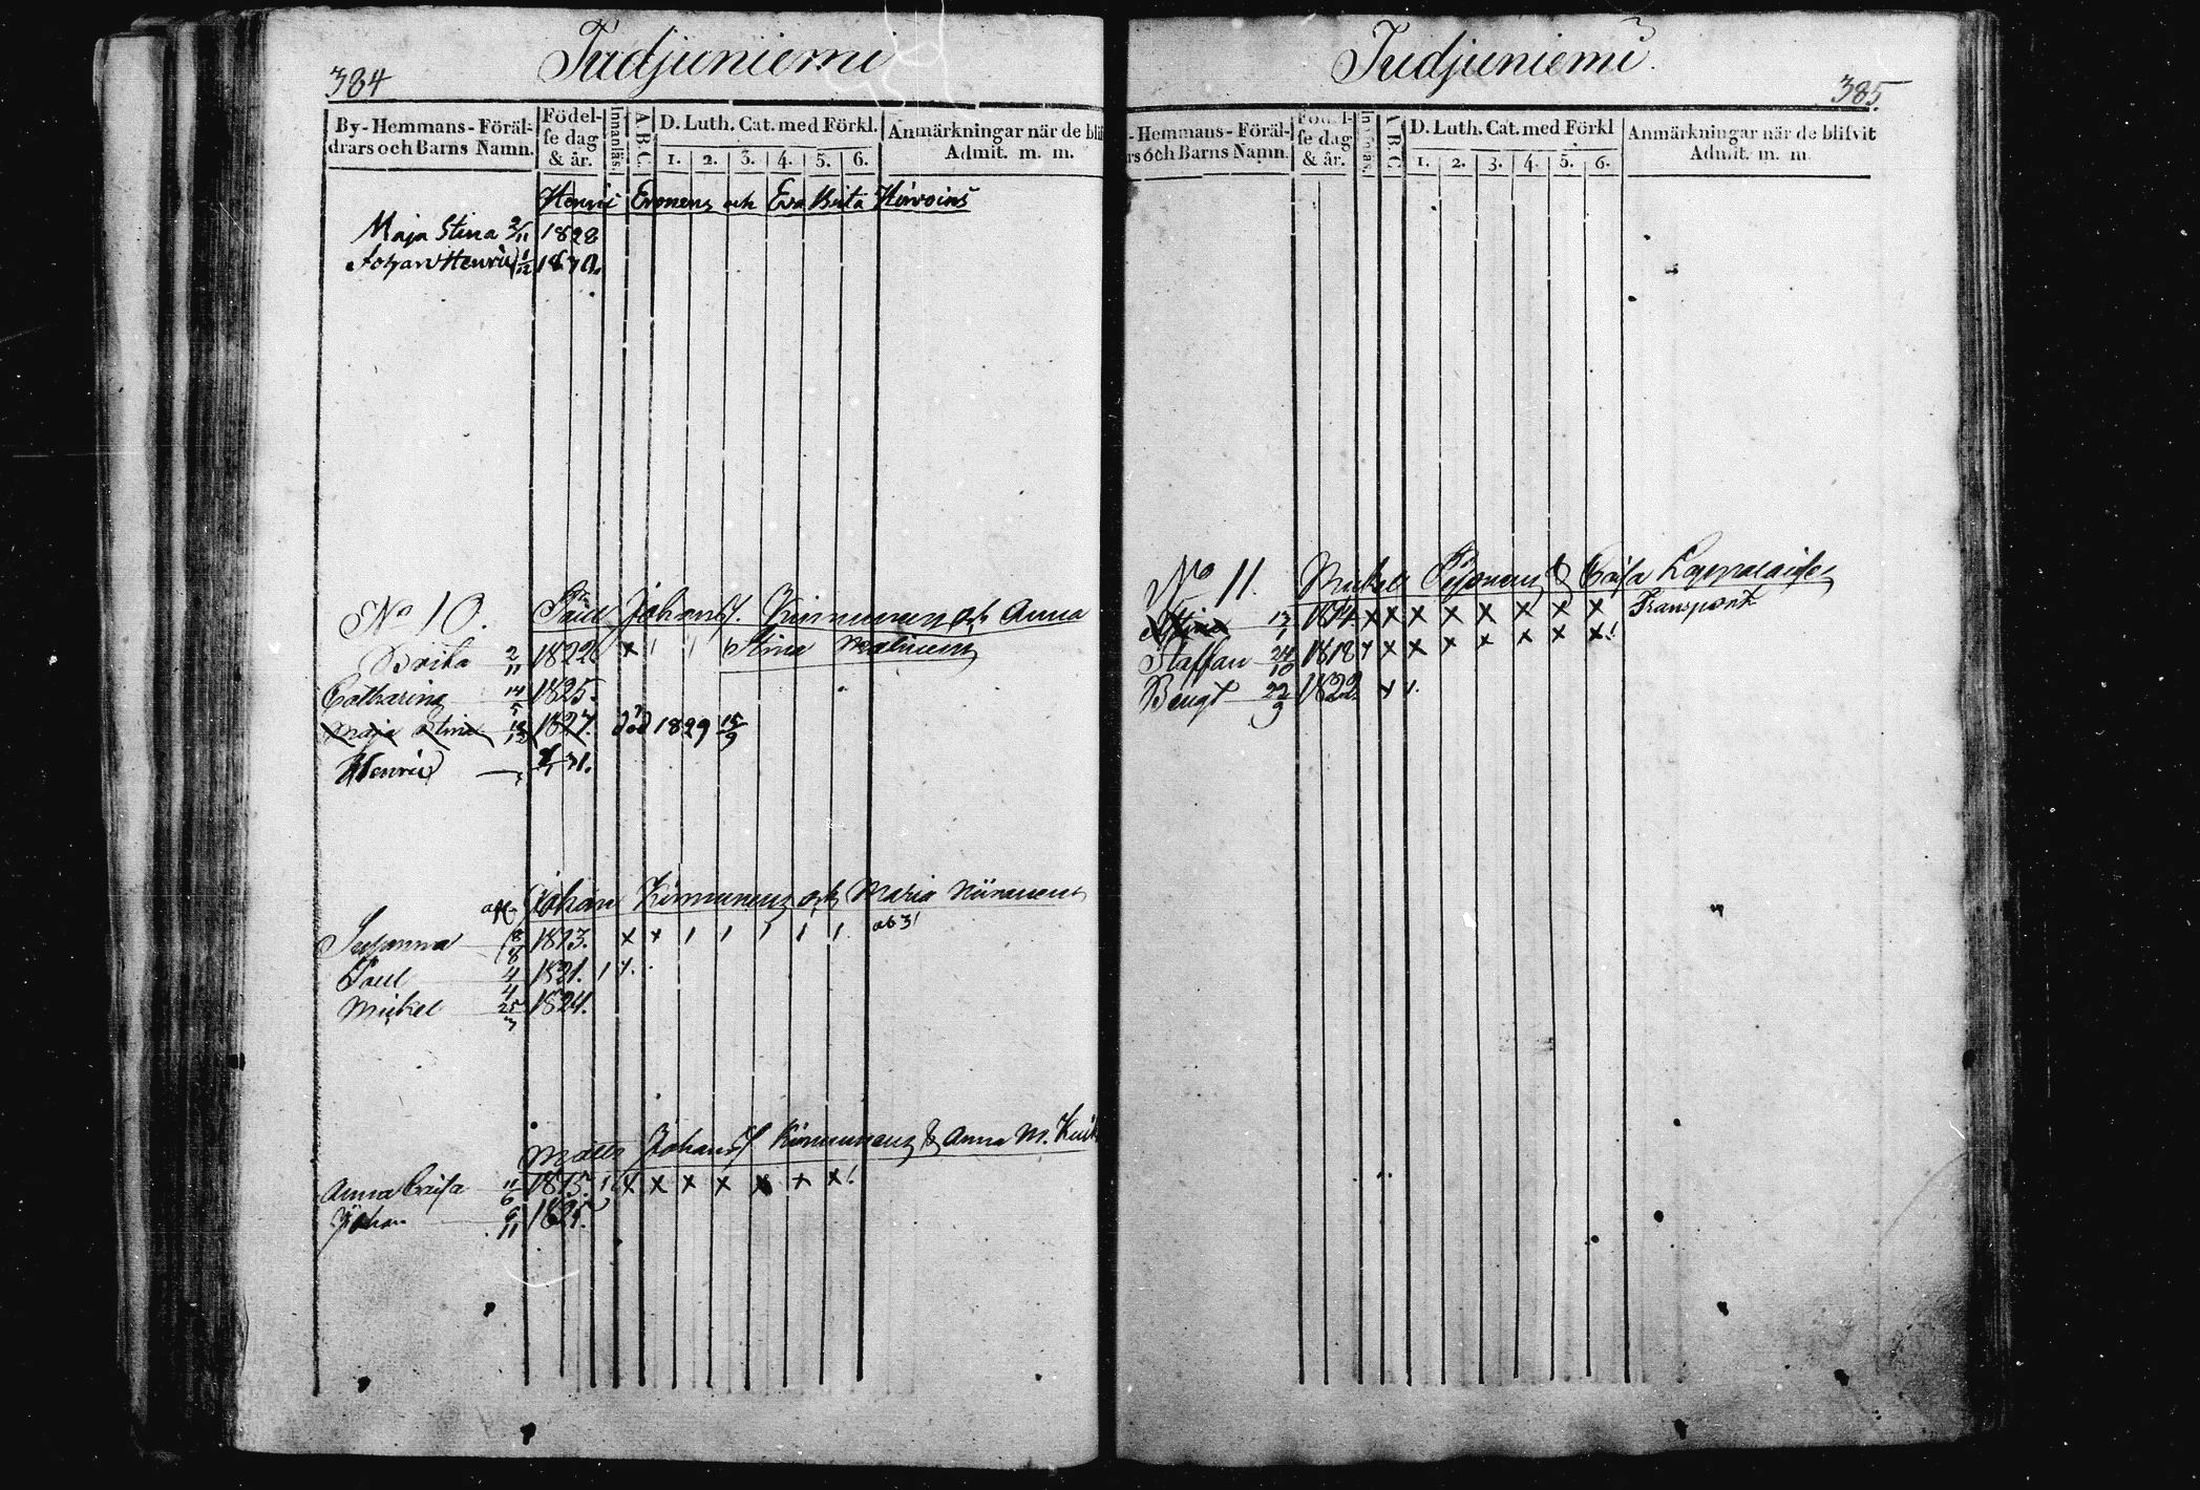 384
Judjuniemi
By-Hemmans-Föräl-
drars och Barns Namn.
Födel-
se dag
& år.
Innanläs.
A B C.
D. Luth. Cat. med Förkl.
1. 2. 3. 4. 5. 6.
Anmärkningar när de blif
Admit. m. m.
Henric Eronen och Eva Brita Hirvoins
Maja Stina 2/11 1828
Johan Henric 1/12 1830.
No 10. Paul Johanss. Kinnunen och Anna
Brita 2/11 1822 x Stina Malinen
Catharina 14/5 1825.
Maja Stina 1827. död 1829 15/9
Henric 31.
Johan Kinnunen och Maria Niiranen
Susanna 8/8 1813. x x 1 1 1 1 1
Paul 4/4 1821.
Mickel 25/3 1824.
Matts Johanss Kinnunen & Anna M.
Anna Caisa 11/6 1815. x x x x x x x!
Johan 6/11 1825.
Judjuniemi.
385.
-Hemmans-Föräl-
rs och Barns Namn.
Födel-
se dag
& år.
Innanläs.
A B C
D. Luth. Cat. med Förkl
1. 2. 3. 4. 5. 6.
Anmärkningar när de blifvit
Admit. m. m.
No 11. Mickel Pesonen & Caisa Lappalaises
Stina 13/1 1814. x x x x x x x x Transport
Staffan 24/10 1818 x x x x x x x!
Bengt 22/9 1822